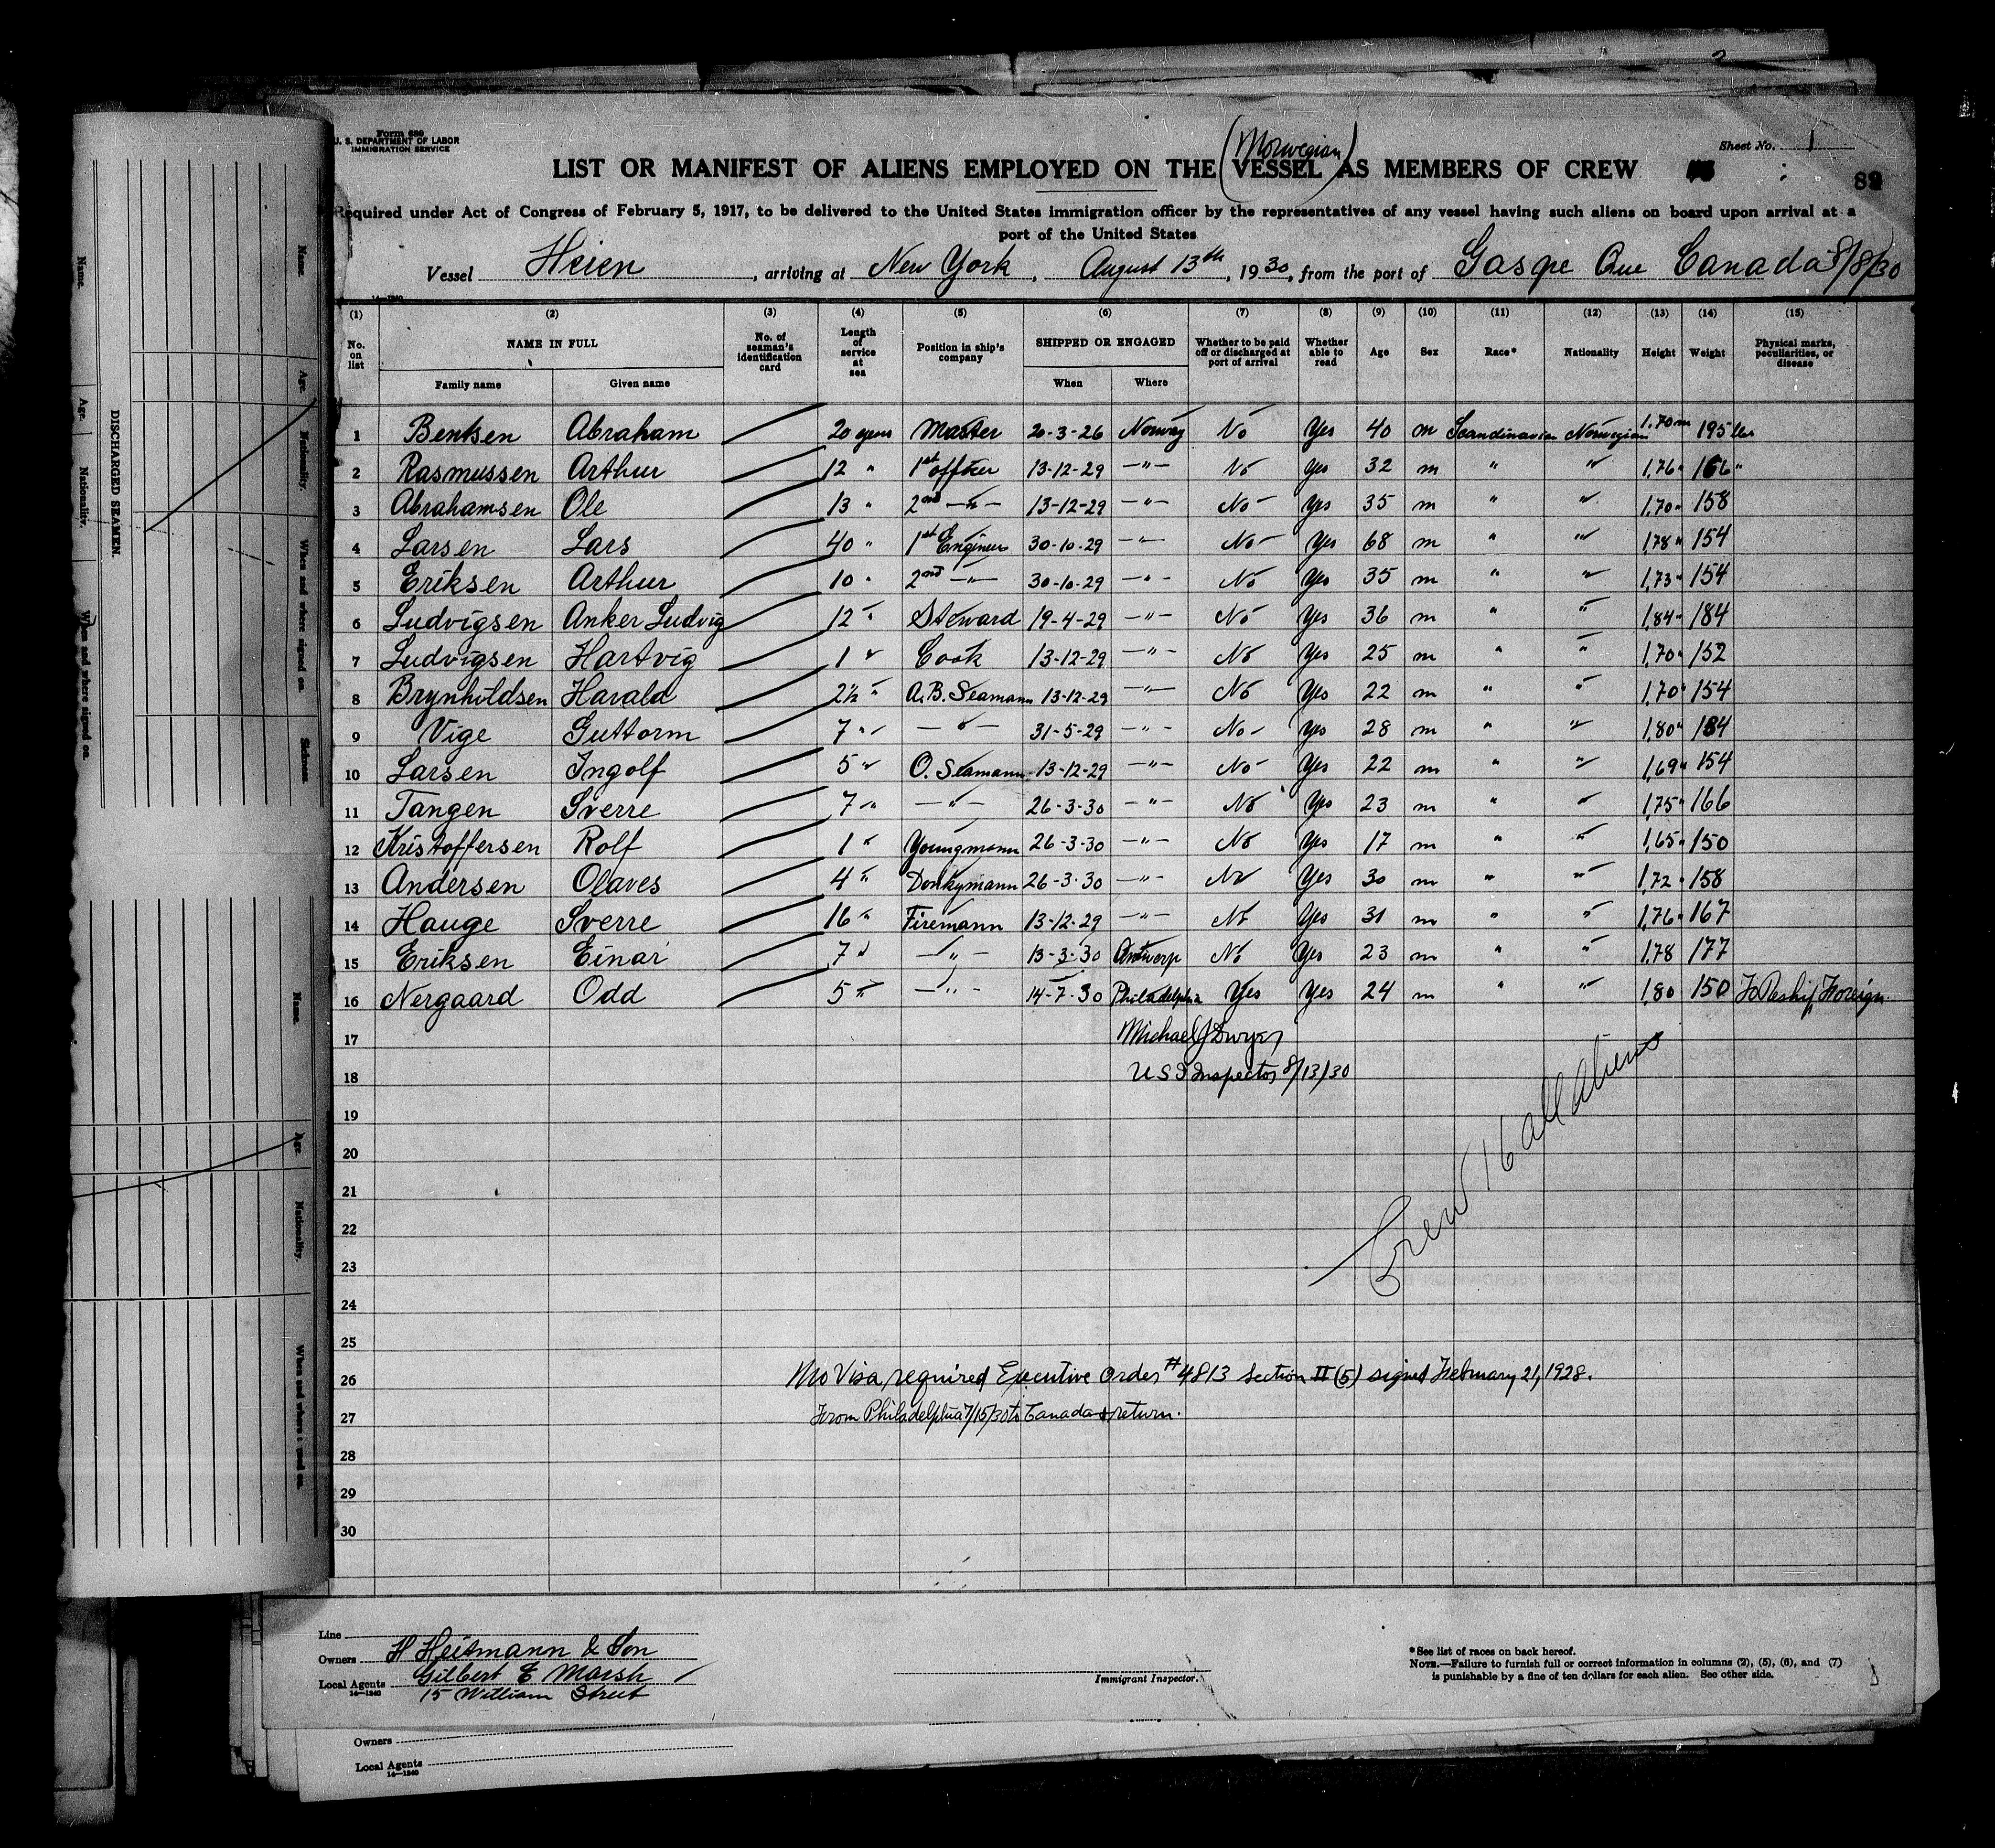 Form 680
U. S. DEPARTMENT OF LABOR
IMMIGRATION SERVICE
Sheet No. 1
(Norwegian)
LIST OR MANIFEST OF ALIENS EMPLOYED ON THE VESSEL AS MEMBERS OF CREW
Required under Act of Congress of February 5, 1917, to be delivered to the United States immigration officer by the representatives of any vessel having such aliens on board upon arrival at a
port of the United States
Vessel Heien, arriving at New York, August 13th, 1930, from the port of Gaspe Que Canada 8/8/30
14—1240
(1) (2) (3) (4) (5) (6) (7) (8) (9) (10) (11) (12) (13) (14) (15)
No. on list NAME IN FULL No. of seaman's identification card Length of service at sea Position in ship's company SHIPPED OR ENGAGED Whether to be paid off or discharged at port of arrival Whether able to read Age Sex Race* Nationality Height Weight Physical marks, peculiarities, or disease
Family name Given name When Where
1 Bentsen Abraham 20 years Master 20-3-26 Norway No Yes 40 m Scandinavian Norwegian 1.70 m 195 lbs
2 Rasmussen Arthur 12 " 1st officer 13-12-29 —"— No Yes 32 m " " 1,76 " 166 "
3 Abrahamsen Ole 13 " 2nd —"— 13-12-29 —"— No Yes 35 m " " 1,70 " 158
4 Larsen Lars 40 " 1st Engineer 30-10-29 —"— No Yes 68 m " " 1,78 " 154
5 Eriksen Arthur 10 " 2nd —"— 30-10-29 —"— No Yes 35 m " " 1,73 " 154
6 Ludvigsen Anker Ludvig 12 " Steward 19-4-29 —"— No Yes 36 m " " 1,84 " 184
7 Ludvigsen Hartvig 1 " Cook 13-12-29 —"— No Yes 25 m " " 1,70 " 152
8 Brynhildsen Harald 2½ " A.B. Seamann 13-12-29 —"— No Yes 22 m " " 1,70 " 154
9 Vige Guttorm 7 " —"— 31-5-29 —"— No Yes 28 m " " 1,80 " 184
10 Larsen Ingolf 5 " O. Seamann 13-12-29 —"— No Yes 22 m " " 1,69 " 154
11 Tangen Sverre 7 " —"— 26-3-30 —"— No Yes 23 m " " 1,75 " 166
12 Kristoffersen Rolf 1 " Youngmann 26-3-30 —"— No Yes 17 m " " 1,65 " 150
13 Andersen Olaves 4 " Donkymann 26-3-30 —"— No Yes 30 m " " 1,72 " 158
14 Hauge Sverre 16 " Firemann 13-12-29 —"— No Yes 31 m " " 1,76 " 167
15 Eriksen Einar 7 " —"— 13-3-30 Antwerp No Yes 23 m " " 1,78 177
16 Nergaard Odd 5 " —"— 14-7-30 Philadelphia Yes Yes 24 m " " 1,80 150 To Reship Foreign.
17 Michael J Dwyer
18 U S I Inspector 8/13/30
19
20
21
22
23
24
25
Crew 16 all aliens
26 No Visa required Executive Order #4813 Section II (5) signed February 21, 1928.
27 From Philadelphia 7/15/30 to Canada & return.
28
29
30
Line
Owners H Heitmann & Son
Local Agents Gilbert E Marsh
15 William Street
14—1240
Immigrant Inspector.
*See list of races on back hereof.
NOTE.—Failure to furnish full or correct information in columns (2), (5), (6), and (7)
is punishable by a fine of ten dollars for each alien. See other side.
Owners
Local Agents
14—1240
DISCHARGED SEAMEN.
Name. Age. Nationality. When and where signed on.
Name. Age. Nationality. When and where signed on. Sickness.
Name. Age. Nationality.